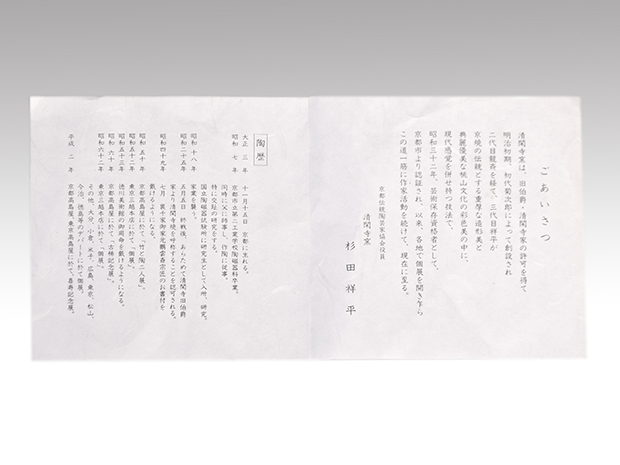 ごあいさつ
清閑寺窯は、旧伯爵・清閑寺家の許可を得て
明治初期、初代菊次郎によって創設され
二代目龍斉を経て、三代目祥平が
京焼の伝統とする重厚な造形美と
典麗優美な桃山文化の彩色美の中に、
現代感覚を併せ持つ技法で、
昭和三十二年、芸術保存資格者として、
京都市より認証され、以来、各地で個展を開き乍ら
この道一筋に作家活動を続けて、現在に至る。
京都伝統陶芸家協会役員
清閑寺窯
杉田祥平
陶歴
大正 三 年 十一月十五日、京都に生れる。
昭和 七 年 京都市立第二工業学校陶磁器科卒業。
同時に父に師事し、作陶に従事。
特に交趾の研究をする。
国立陶磁器試験所に研究生として入所、研究。
昭和 十八年 家業を襲う。
昭和二十五年 五月五日 終戦後、あらためて清閑寺旧伯爵
家より清閑寺焼を呼称することを認可される。
昭和四十九年 七月 裏千家御家元鵬雲斎宗匠のお書付を
戴けるようになる。
昭和 五十年 京都高島屋に於て「竹と陶二人展」。
昭和五十二年 東京三越本店に於て「個展」。
昭和五十三年 徳川美術館の御用命を戴けるようになる。
昭和 六十年 京都高島屋に於て「古稀記念展」。
昭和六十二年 東京三越本店に於て「個展」。
その他、大分、小倉、米子、広島、東京、松山、
今治、徳島等のデパートに於て個展。
平成 二 年 京都高島屋、東京高島屋に於て、喜寿記念展。